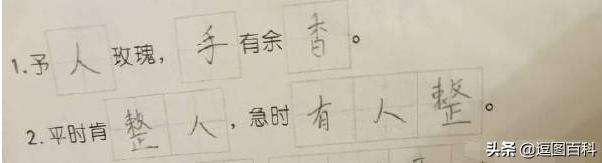 1.予人玫瑰，手有余香。
2.平时肯整人，急时有人整。
头条@逗图百科